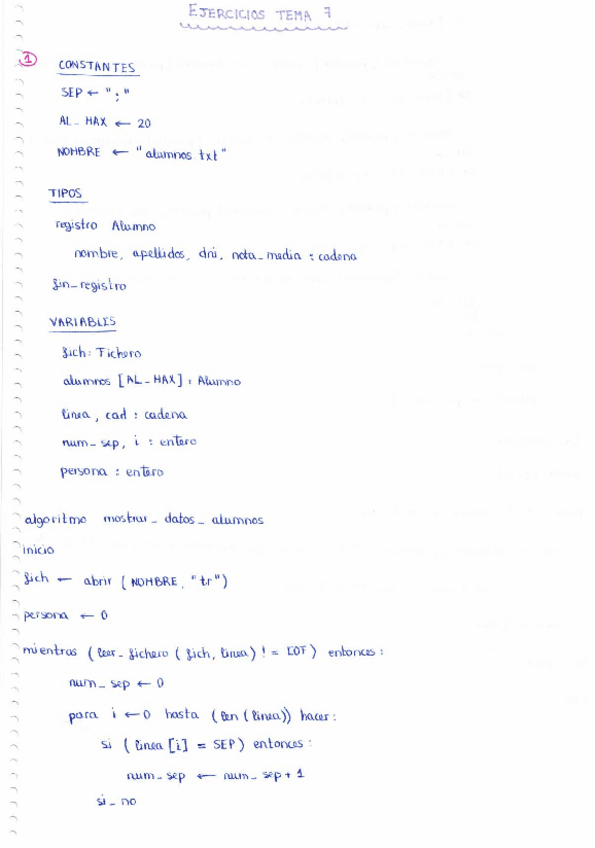 EJERCICIOS TEMA 7
1
CONSTANTES
SEP ← ";"
AL_MAX ← 20
NOMBRE ← "alumnos txt"
TIPOS
registro Alumno
nombre, apellidos, dni, nota_media : cadena
fin_registro
VARIABLES
fich: Fichero
alumnos [AL_MAX] : Alumno
linea, cad : cadena
num_sep, i : entero
persona : entero
algoritmo mostrar_datos_alumnos
inicio
fich ← abrir (NOMBRE, "tr")
persona ← 0
mientras (leer_fichero (fich, linea) != EOF) entonces:
num_sep ← 0
para i ← 0 hasta (len (linea)) hacer:
si (linea [i] = SEP) entonces:
num_sep ← num_sep + 1
si_no